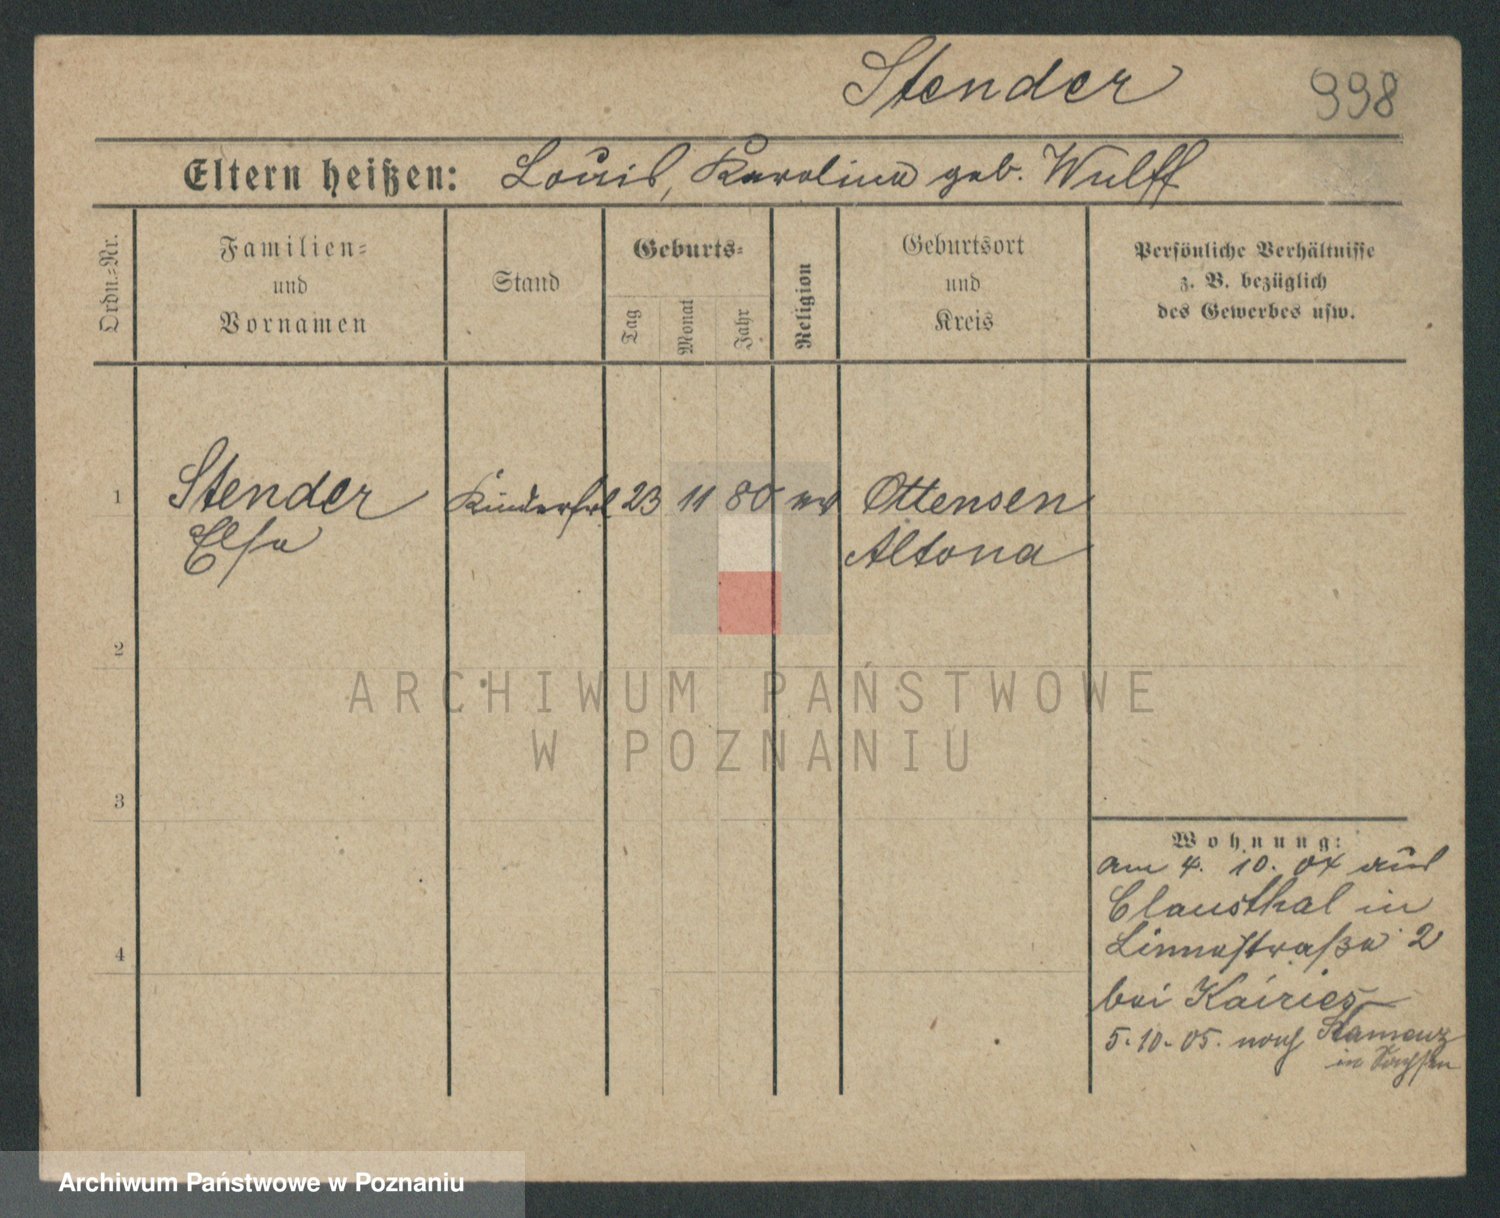 Stender
998
Eltern heißen: Louis, Karolina geb. Wulff
Ordn.=Nr.
Familien=
und
Vornamen
Stand
Geburts=
Tag
Monat
Jahr
Religion
Geburtsort
und
Kreis
Persönliche Verhältnisse
z. B. bezüglich
des Gewerbes usw.
1
Stender
Elsa
Kinderfrl
23
11
80
ev
Ottensen
Altona
2
3
4
Wohnung:
am 4. 10. 04 aus
Clausthal in
Linnestraße 2
bei Kairies
5.10.05. nach Kamenz
in Sachsen
ARCHIWUM PAŃSTWOWE
W POZNANIU
Archiwum Państwowe w Poznaniu